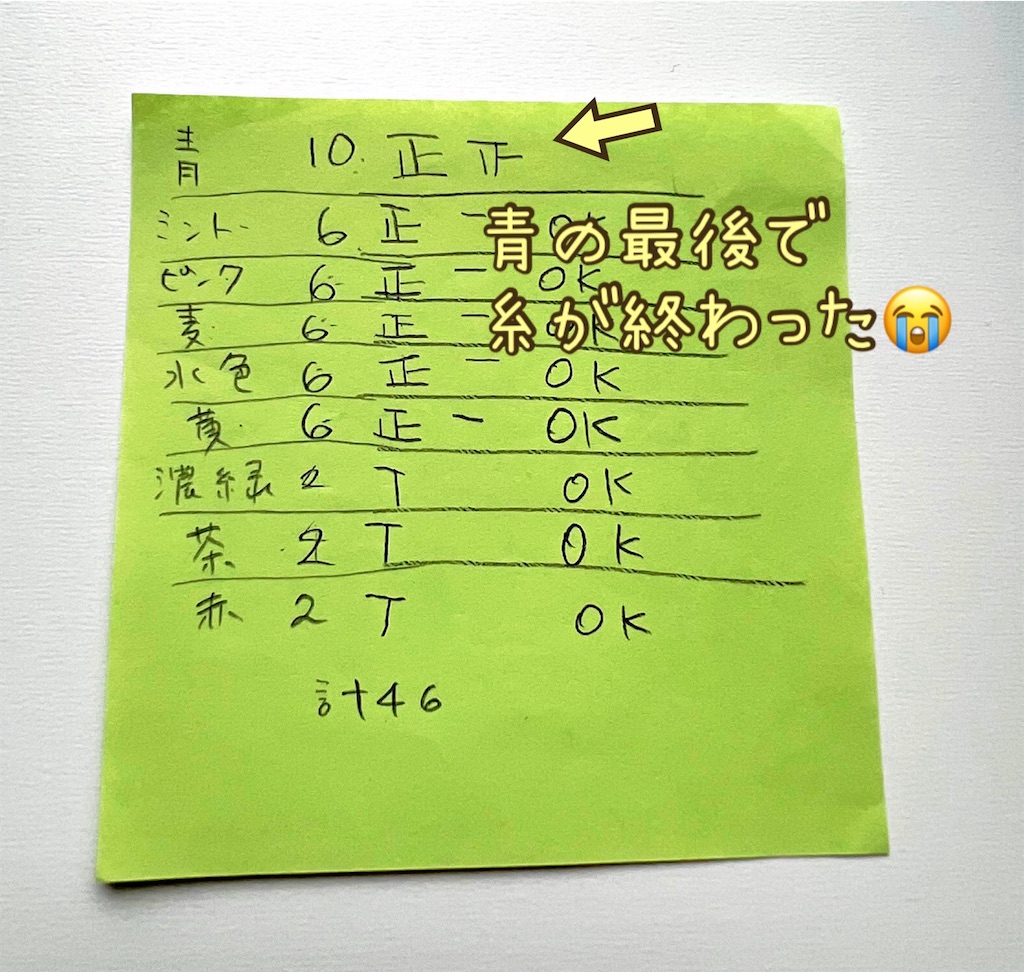 青 10 正
ミント 6 正 一 OK
ピンク 6 正 一 OK
麦 6 正 一 OK
水色 6 正 一 OK
黄 6 正 一 OK
濃緑 2 T OK
茶 2 T OK
赤 2 T OK
計46
青の最後で
糸が終わった😭